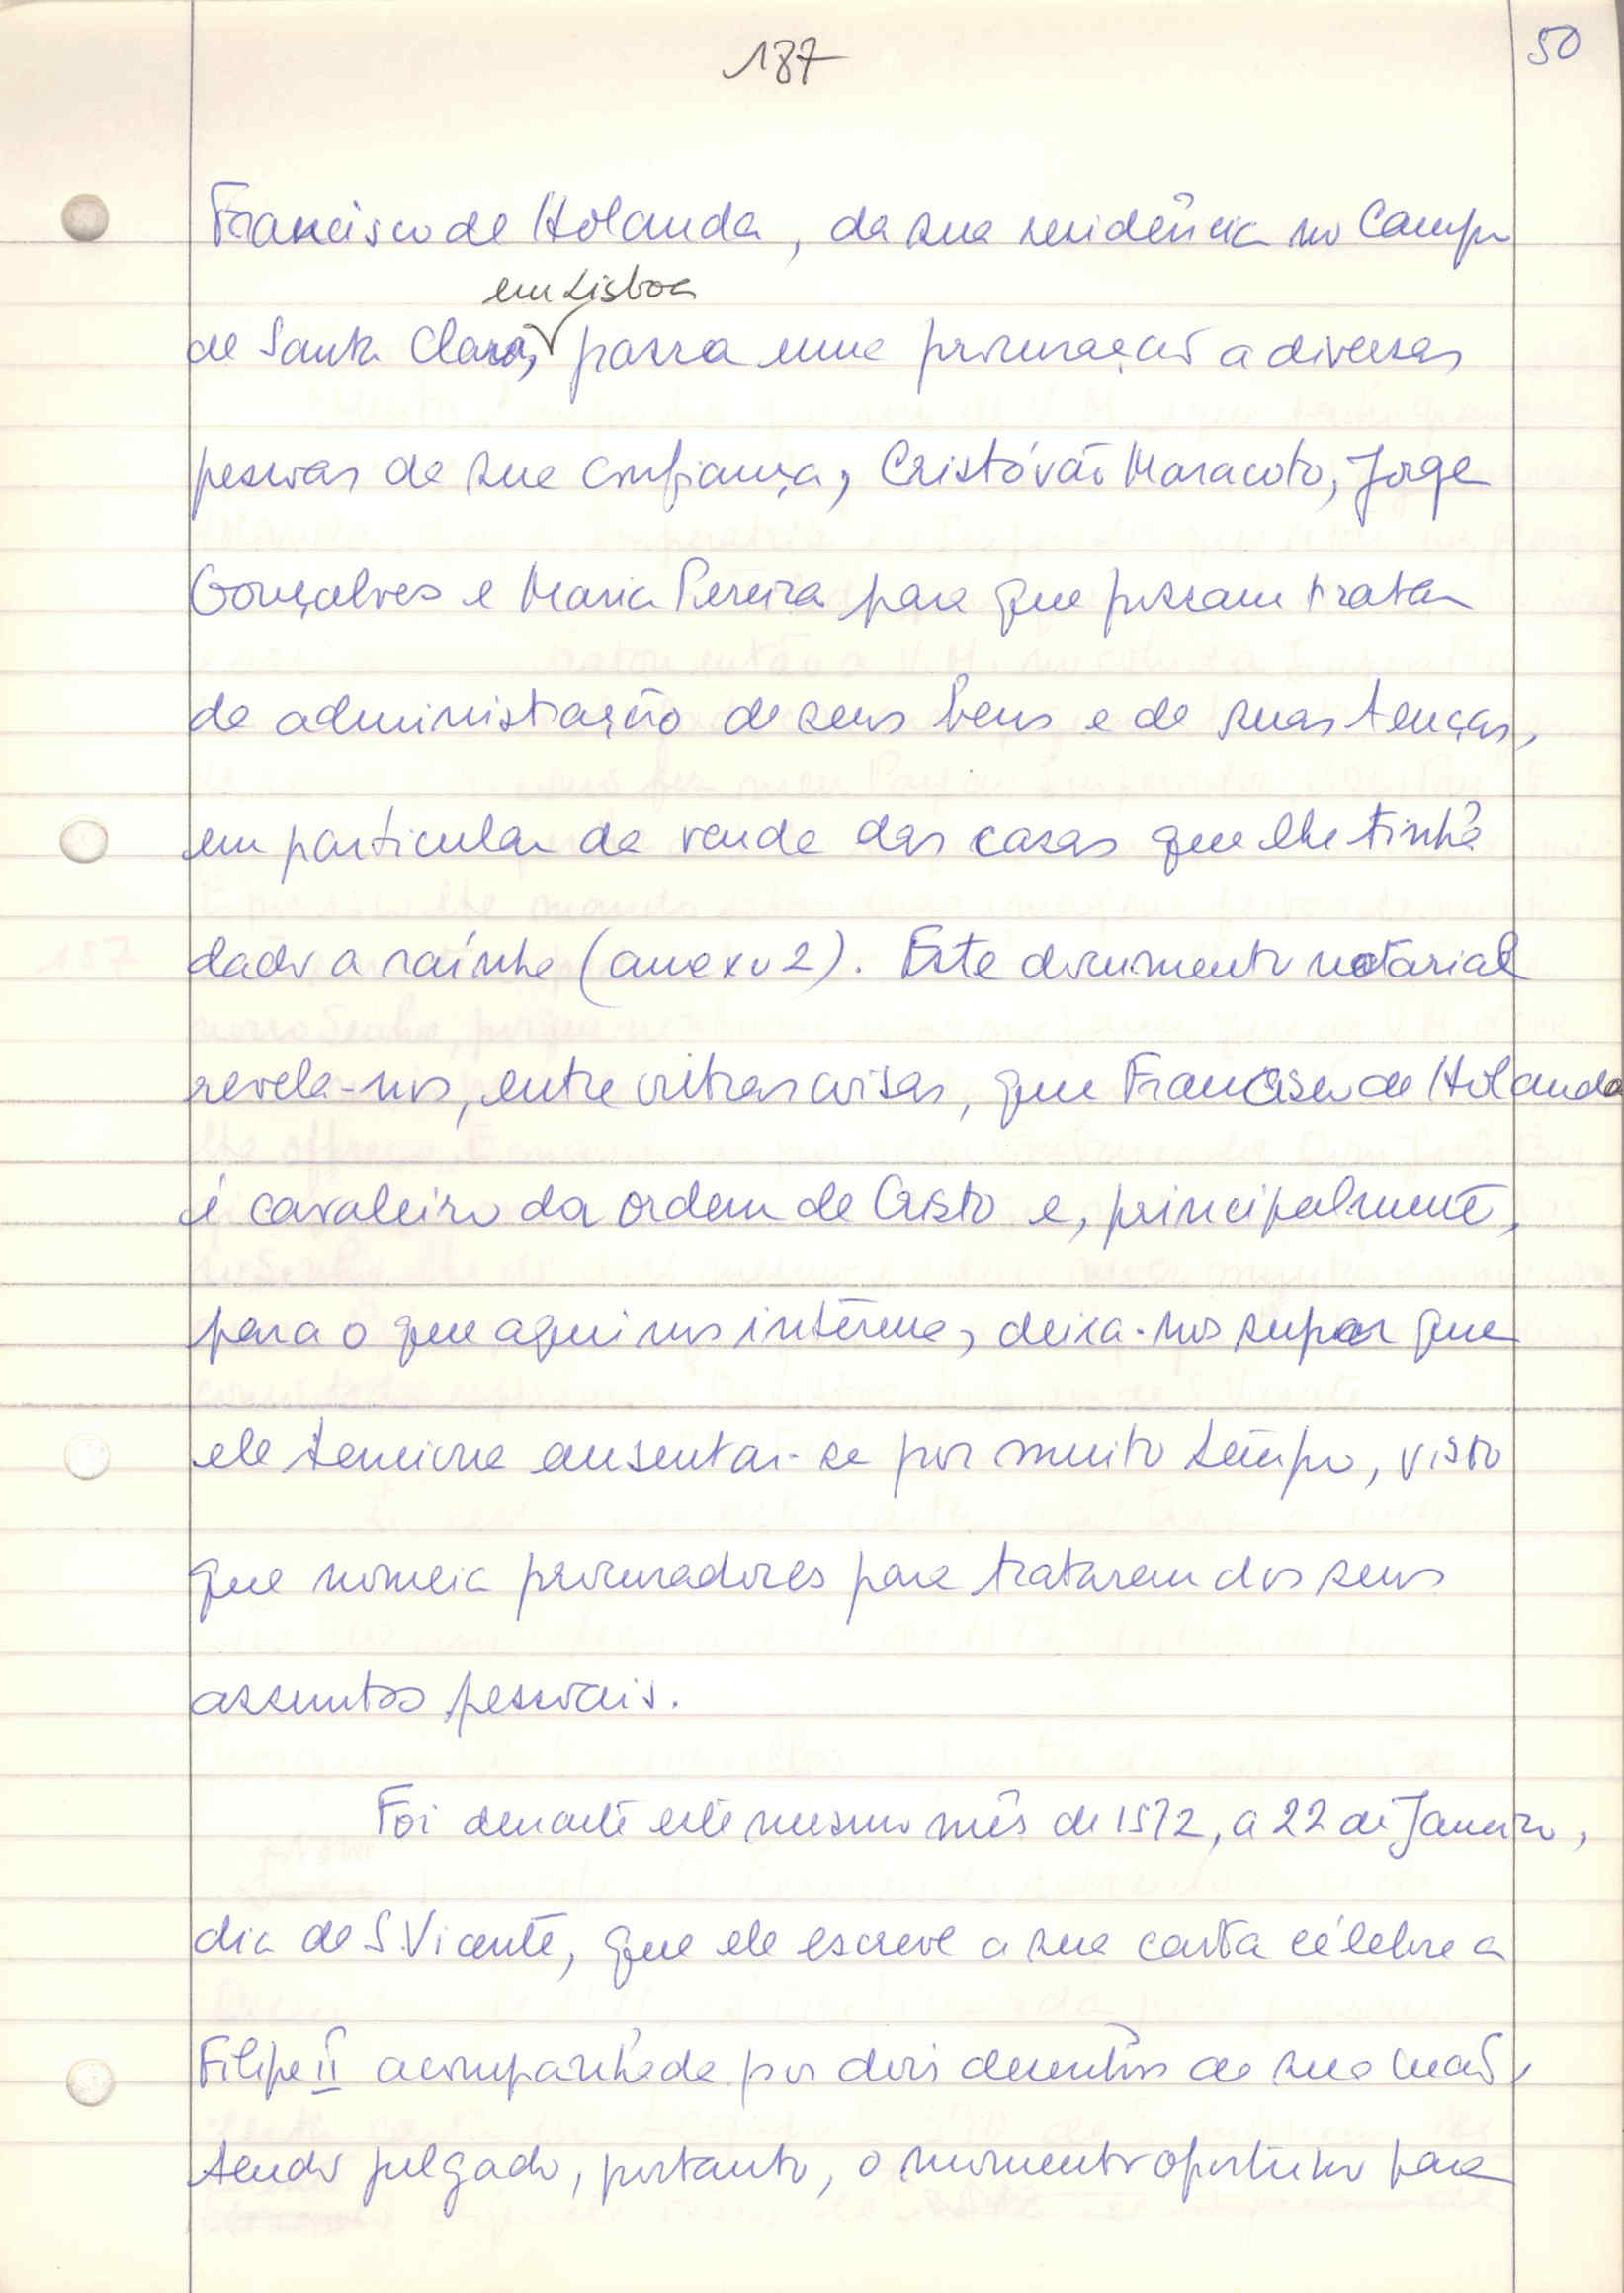 187
50
Francisco de Holanda, da sua residência no Campo
em Lisboa
de Santa Clara, passa uma procuração a diversas
pessoas de sua confiança, Cristóvão Maracoto, Jorge
Gonçalves e Maria Pereira para que possam tratar
da administração de seus bens e de suas tenças,
em particular da venda das casas que lhe tinha
dado a raínha (anexo 2). Este documento notarial
revela-nos, entre outras coisas, que Francisco de Holanda
é cavaleiro da ordem de Cristo e, principalmente,
para o que aqui nos interessa, deixa-nos supor que
ele tenciona ausentar-se por muito tempo, visto
que nomeia procuradores para tratarem dos seus
assuntos pessoais.
Foi durante este mesmo mês de 1572, a 22 de Janeiro,
dia de S. Vicente, que ele escreve a sua carta célebre a
Filipe II acompanhada por dois desenhos de sua mão,
tendo julgado, portanto, o momento oportuno para